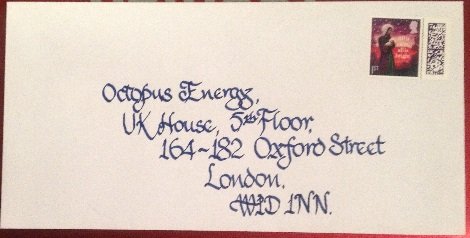 Octopus Energy,
UK House, 5th Floor,
164~182 Oxford Street
London.
W1D 1NN.
1st